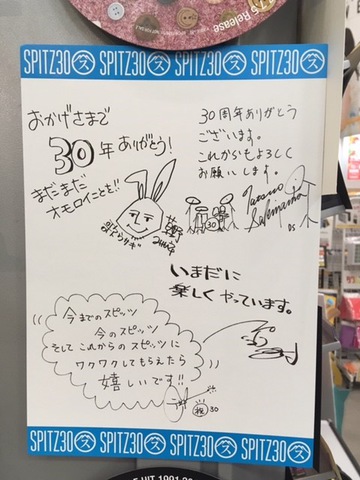 7.5 Release
SPITZ30 ス SPITZ30 ス SPITZ30 ス SPITZ30 ス
おかげさまで
30年ありがとう!
まだまだ
オモロイことも!!
30周年ありがとう
ございます。
これからもよろしく
お願いします。
いまだに
楽しくやっています。
今までのスピッツ
今のスピッツ
そして これからのスピッツに
ワクワクしてもらえたら
嬉しいです!!
祝 30
SPITZ30 ス SPITZ30 ス SPITZ30 ス SPITZ30 ス